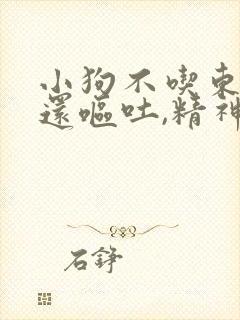 小狗不喫東
還嘔吐,精神
石錚